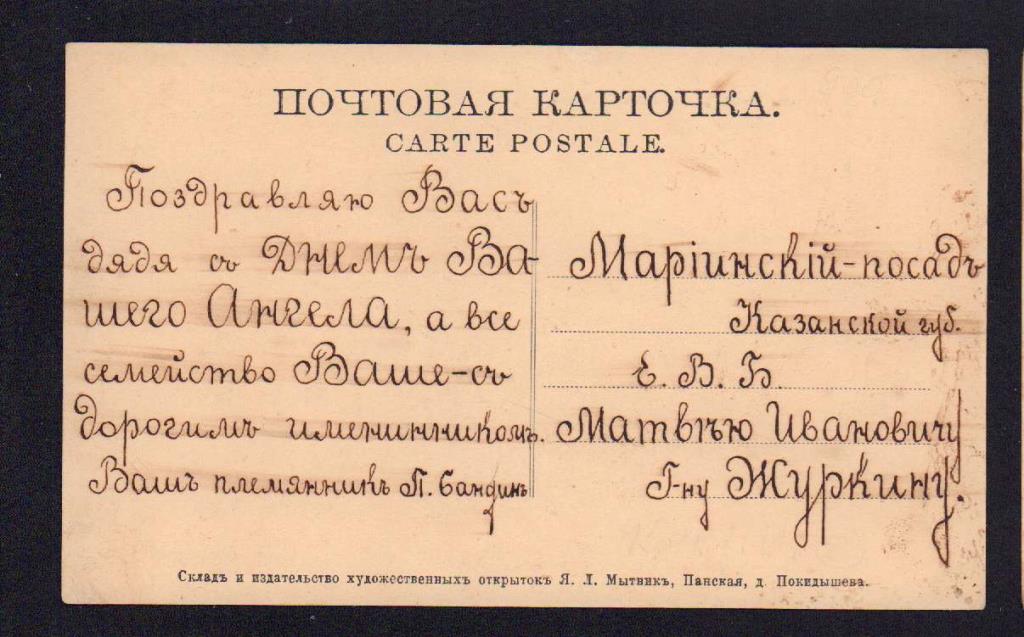 ПОЧТОВАЯ КАРТОЧКА.
CARTE POSTALE.
Поздравляю Васъ
дядя съ Днемъ Ва-
шего Ангела, а все
семейство Ваше-съ
дорогимъ именинникомъ.
Вашъ племянникъ П.
Марiинскiй-посадъ
Казанской губ.
Е. В. Б.
Матвѣю Ивановичу
Г-ну Журкину.
Складъ и издательство художественныхъ открытокъ Я. Л. Мытникъ, Панская, д. Покидышева.